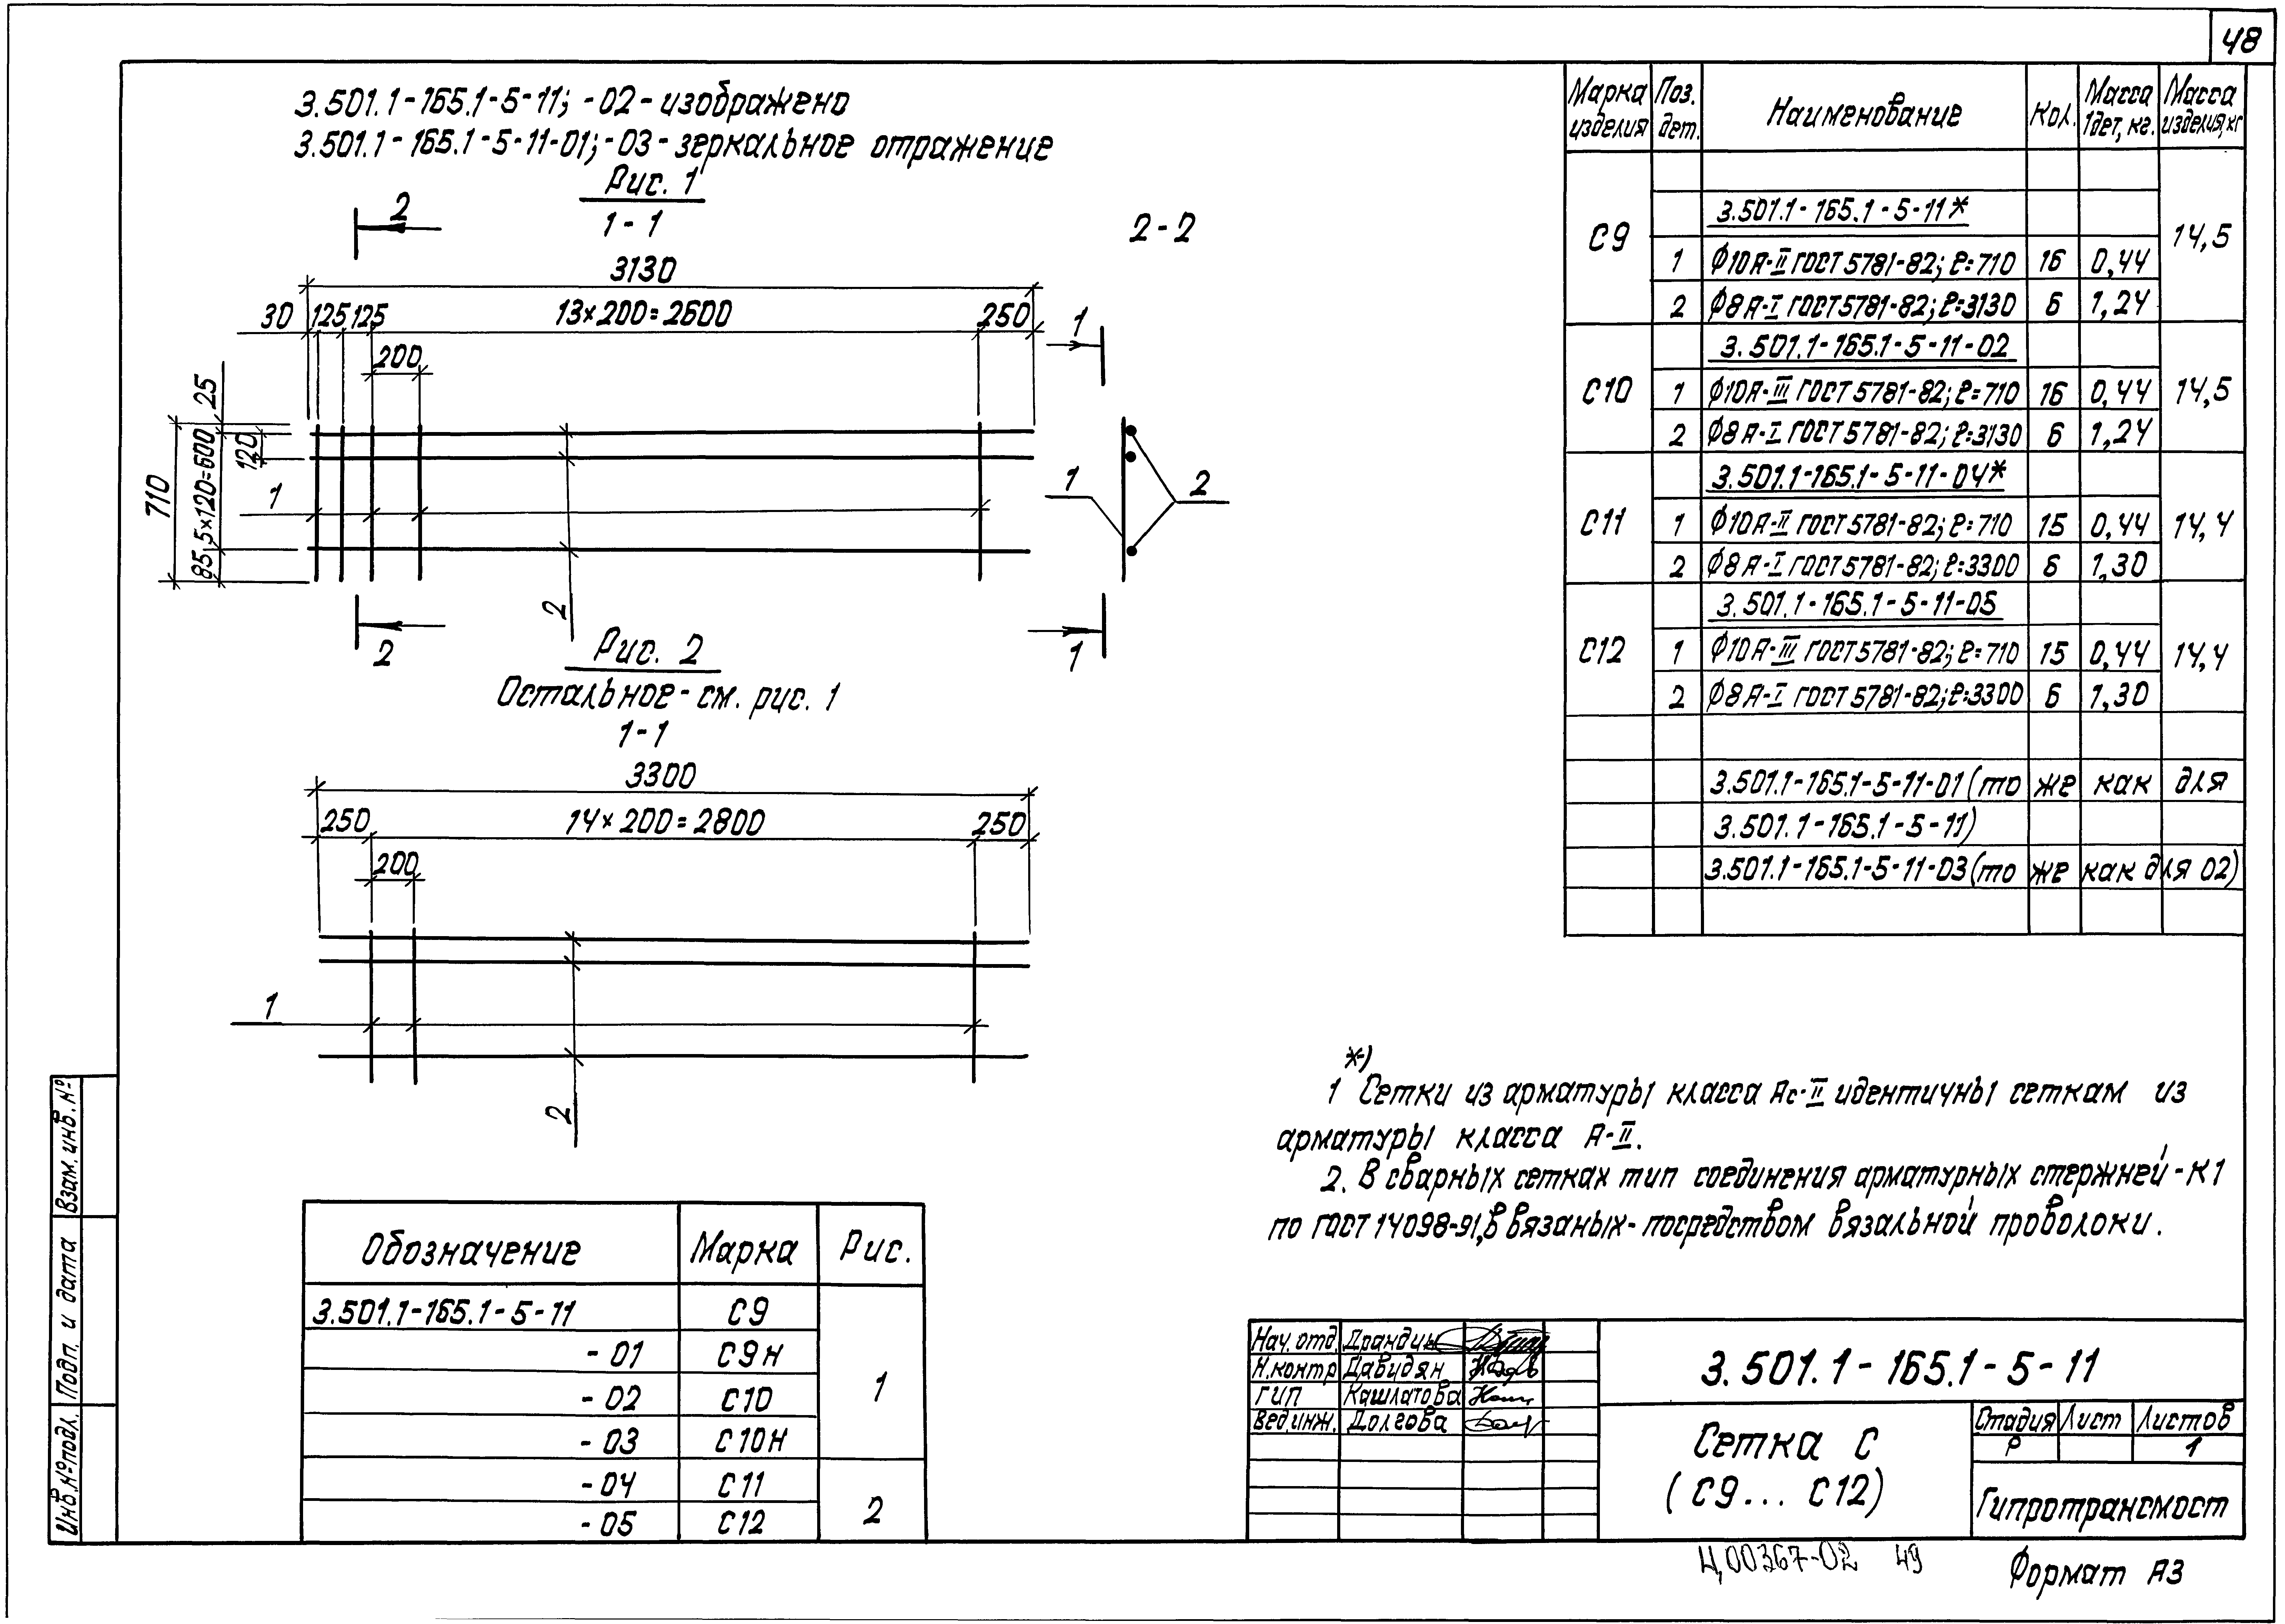 48
3.501.1-165.1-5-11; -02-изображено
3.501.1-165.1-5-11-01; -03-зеркальное отражение
Рис. 1
1-1
2-2
2
3130
30 125 125 13×200=2600 250
200
1
25
120
710
5×120=600
85
1
1
2
2
2
1
Рис. 2
Остальное-см. рис. 1
1-1
3300
250 14×200=2800 250
200
1
2
Марка изделия Поз. дет. Наименование Кол. Масса 1дет, кг. Масса изделия, кг
С9 3.501.1-165.1-5-11* 14,5
1 Ф10А-II ГОСТ 5781-82; ℓ=710 16 0,44
2 Ф8А-I ГОСТ 5781-82; ℓ=3130 6 1,24
С10 3.501.1-165.1-5-11-02 14,5
1 Ф10А-III ГОСТ 5781-82; ℓ=710 16 0,44
2 Ф8А-I ГОСТ 5781-82; ℓ=3130 6 1,24
С11 3.501.1-165.1-5-11-04* 14,4
1 Ф10А-II ГОСТ 5781-82; ℓ=710 15 0,44
2 Ф8А-I ГОСТ 5781-82; ℓ=3300 6 1,30
С12 3.501.1-165.1-5-11-05 14,4
1 Ф10А-III ГОСТ 5781-82; ℓ=710 15 0,44
2 Ф8А-I ГОСТ 5781-82; ℓ=3300 6 1,30
3.501.1-165.1-5-11-01 (то же как для
3.501.1-165.1-5-11)
3.501.1-165.1-5-11-03 (то же как для 02)
*)
1 Сетки из арматуры класса Ас-II идентичны сеткам из
арматуры класса А-II.
2. В сварных сетках тип соединения арматурных стержней-К1
по ГОСТ 14098-91, в вязаных- посредством вязальной проволоки.
Обозначение Марка Рис.
3.501.1-165.1-5-11 С9 1
-01 С9Н
-02 С10
-03 С10Н
-04 С11 2
-05 С12
Взам. инв. №
Подп. и дата
Инв. № подл.
Нач. отд. Драндин
Н.контр Давидян
ГИП Кашлатова
Вед.инж. Долгова
3.501.1-165.1-5-11
Сетка С
(С9... С12)
Стадия Лист Листов
Р 1
Гипротрансмост
Ц.00367-02 49
Формат А3